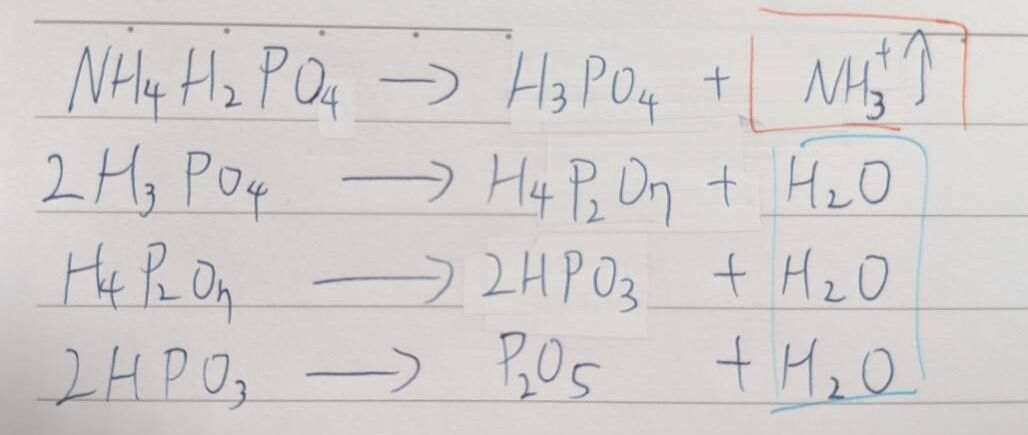 NH₄H₂PO₄ → H₃PO₄ + NH₃⁺↑
2H₃PO₄ → H₄P₂O₇ + H₂O
H₄P₂O₇ → 2HPO₃ + H₂O
2HPO₃ → P₂O₅ + H₂O